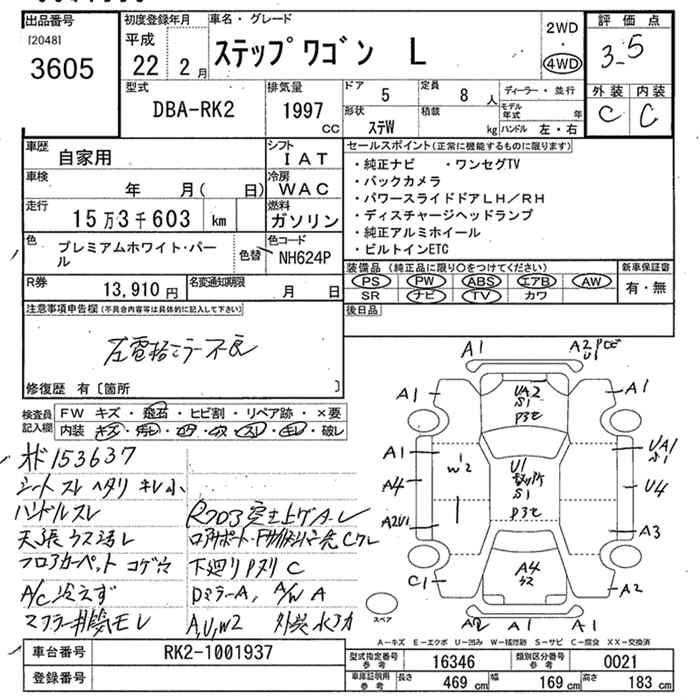 出品番号
[2048]
3605
初度登録年月
平成
22 2 月
車名・グレード
ステップ ワゴン L
2WD
・
4WD
評価点
3.5
外装 内装
C C
型式
DBA-RK2
排気量
1997
CC
ドア
5
定員
8 人
形状
ステW
積載
kg
ディーラー・並行
モデル年式 年
ハンドル 左・右
車歴
自家用
シフト
I A T
車検
年 月( 日)
冷房
W A C
走行
15万3千603 km
燃料
ガソリン
色
プレミアムホワイト・パール
色替
色コード
NH624P
R券
13,910 円
名変通知期限
月 日
セールスポイント(正常に機能するものに限ります)
・純正ナビ ・ワンセグTV
・バックカメラ
・パワースライドドアLH/RH
・ディスチャージヘッドランプ
・純正アルミホイール
・ビルトインETC
装備品(純正品に限り○をつけてください)
PS PW ABS エアB AW
SR ナビ TV カワ
新車保証書
有・無
後日品
注意事項申告欄(不具合内容等は具体的に記入して下さい)
左電格ミラー不良
修復歴 有〔箇所 〕
検査員記入欄
FW キズ・飛石・ヒビ割・リペア跡・×要
内装 キズ・汚レ・凹・穴・スレ・モレ・破レ
153637
シートスレ ヘタリ キレ小
ハンドルスレ
天張ウス汚レ
フロアカーペット コゲ穴
A/C冷えず
マフラー排気モレ
Rフロア突上げA-C
下廻りPヌリ C
DミラーA, A/W A
A,U,W2
A1
A2
U1
A1
A1
UA2
S1
A1
UA1
S1
A4
W2
U1
S1
U4
A2U1
A3
C1
A4
A2
A2 A1 A1
スペア
A-キズ E-エクボ U-凹み W-補修跡 S-サビ C-腐食 XX-交換済
車台番号
RK2-1001937
登録番号
型式指定番号
参考
16346
類別区分番号
参考
0021
車庫証明用
参考
長さ
469 cm
幅
169 cm
高さ
183 cm